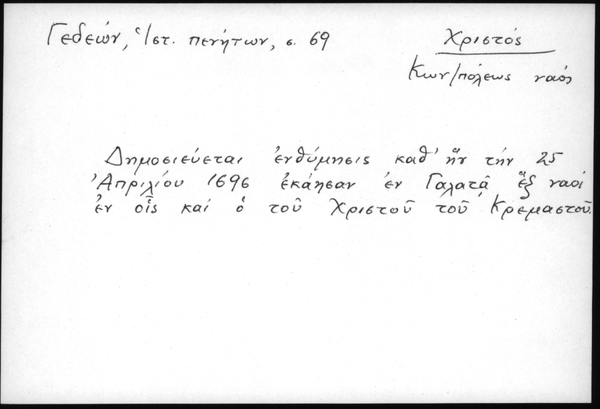 Γεδεών, Ἱστ. πενήτων, σ. 69
Χριστός
Κων/πόλεως ναός
Δημοσιεύεται ἐνθύμησις καθ' ἥν τήν 25
Ἀπριλίου 1696 ἐκάησαν ἐν Γαλατᾷ ἕξ ναοί
ἐν οἷς καί ὁ τοῦ Χριστοῦ τοῦ Κρεμαστοῦ.